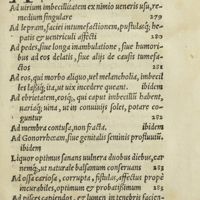 Ad uirum imbecillitatem ex nimio ueneris usu, re⸗
medium singulare 279
Ad lepram, faciei intumefactionem, pustulasq́; he⸗
patis & uentriculi affecti 280
Ad pedes, siue longa inambulatione, siue humori⸗
bus ad eos delatis, siue alijs de causis tumefa⸗
ctos 281
Ad eos, qui morbo aliquo, uel melancholia, imbecil
les lassiq́; ita, ut uix incedere queant. ibidem
Ad ebrietatem, eosq́;, qui caput imbecille habent,
uariaq́; uina, ut in conuiuijs solet, potare co⸗
guntur 282
Ad membra contusa, non fracta. ibidem
Ad Gonorrhœam, siue genitalis seminis profluuiũ.
ibidem
Liquor optimus sanans uulnera duobus diebus, car
nemq́; ut naturale balsamum conseruans 283
Ad ossa cariosa, corrupta, fistulas, affectus propè
incurabiles, optimum & probatissimum 285
Ad pisces capiendos, & lumen in tenebris facien⸗